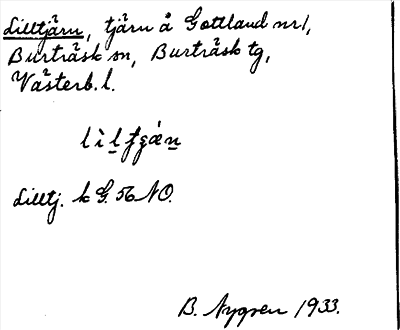 Lilltjärn, tjärn å Gottland nr 1,
Burträsk sn, Burträsk tg,
Västerb. l.
Lilltj. k G. 56 NO.
B. Nygren 1933.